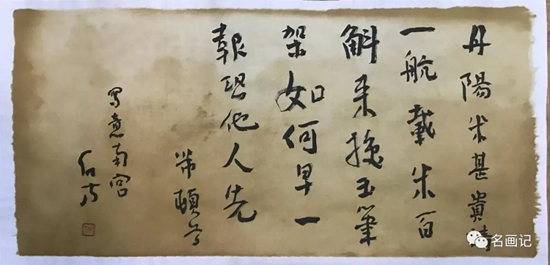 丹陽米甚貴請
一航載米百
斛来換玉筆
架如何早一
報恐他人先
芾頓首
写意南宮
名画记